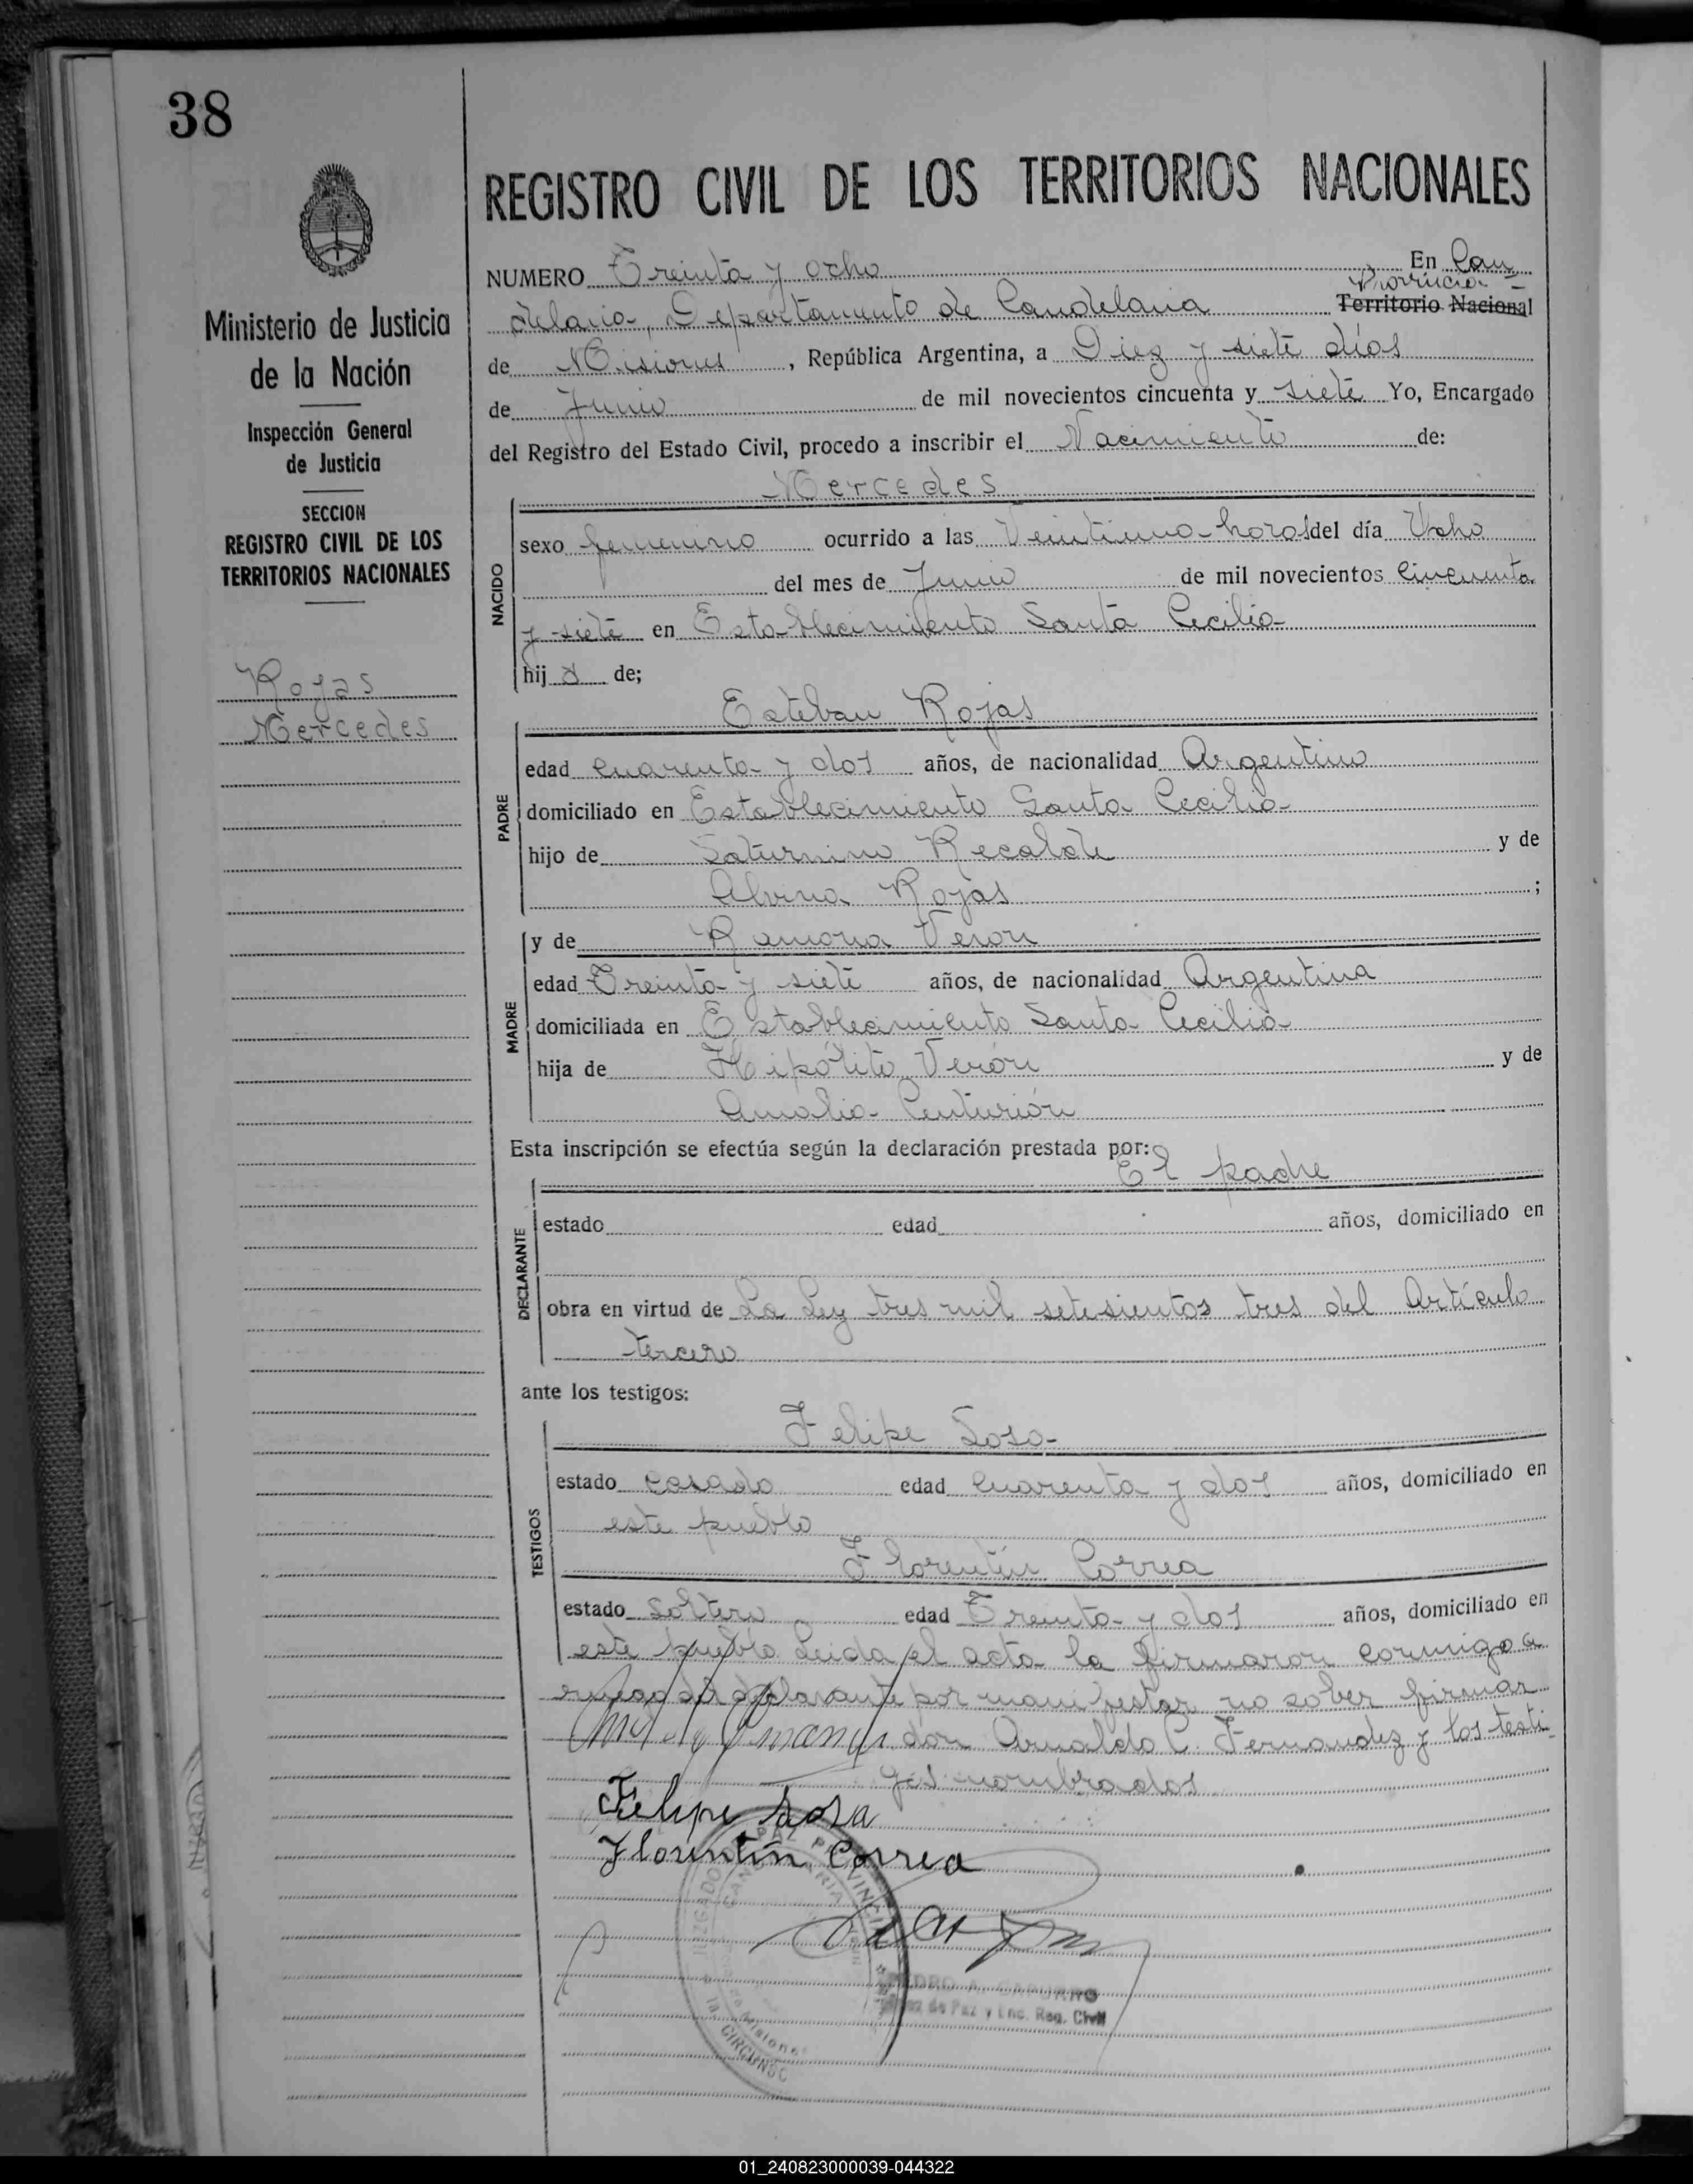 38
REGISTRO CIVIL DE LOS TERRITORIOS NACIONALES
Ministerio de Justicia
de la Nación
Inspección General
de Justicia
SECCION
REGISTRO CIVIL DE LOS
TERRITORIOS NACIONALES
Rojas
Mercedes
NUMERO Treinta y ocho En Can-
Provincia
delaria, Departamento de Candelaria Territorio Nacional
de Misiones, República Argentina, a Diez y siete días
de Junio de mil novecientos cincuenta y siete Yo, Encargado
del Registro del Estado Civil, procedo a inscribir el Nacimiento de:
Mercedes
NACIDO
sexo femenino ocurrido a las Veintiuno horas del día Ocho
del mes de Junio de mil novecientos Cincuenta
y siete en Establecimiento Santa Cecilia
hija de;
Esteban Rojas
PADRE
edad Cuarenta y dos años, de nacionalidad Argentino
domiciliado en Establecimiento Santa Cecilia
hijo de Saturnino Recalde y de
Alvina Rojas ;
y de Ramona Veron
MADRE
edad Treinta y siete años, de nacionalidad Argentina
domiciliada en Establecimiento Santa Cecilia
hija de Hipólito Verón y de
Amalia Centurión
Esta inscripción se efectúa según la declaración prestada por:
El padre
DECLARANTE
estado edad años, domiciliado en
obra en virtud de La Ley tres mil setesientos tres del Artículo
tercero
ante los testigos:
Felipe Sosa
TESTIGOS
estado casado edad Cuarenta y dos años, domiciliado en
este pueblo
Florentín Correa
estado Soltero edad Treinta y dos años, domiciliado en
este pueblo Leida el acta la firmaron conmigo a
declarante por manifestar no saber firmar
don Arnaldo C. Fernandez y los testi-
gos nombrados
Felipe Sosa
Florentín Correa
JUZGADO PAZ PROVINCIA
Misiones
1a. CIRCUNSC
PEDRO A. CAPURRO
Juez de Paz y Enc. Reg. Civil
01_240823000039-044322